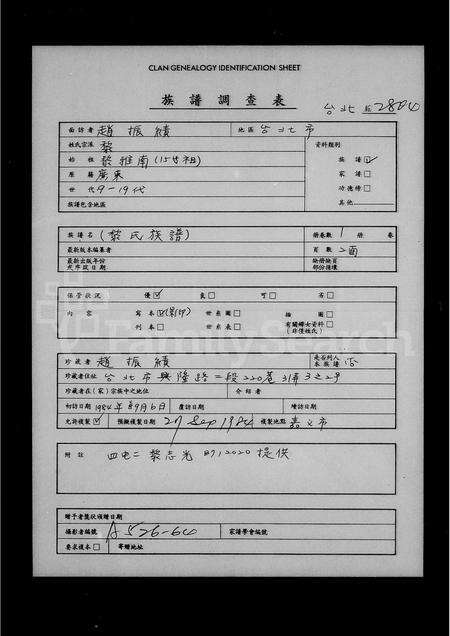 CLAN GENEALOGY IDENTIFICATION SHEET
族譜調查表
台北 2804
面訪者 趙振績 地區 台北市
姓氏宗派 黎 資料類別
始祖 黎雅南(15世祖) 族譜 ☑
原籍 廣東 家譜 □
世代 9-19代 功德榜 □
族譜包含地區 其他
族譜名 (黎氏族譜) 冊卷數 1 冊 卷
最新版本編纂者 頁數 二面
最新出版年份 缺冊缺頁
或序跋日期 部份損壞
保管狀況 優 ☑ 良 □ 可 □ 劣 □
內容 寫本 ☑(影印) 世系圖 □ 插圖 □
刊本 □ 世系表 □ 有關婦女資料 □
(非僅姓氏)
珍藏者 趙振績 是否列入本族譜 否
珍藏者住址 台北市興隆路二段220巷31弄3之2号
珍藏者在(家)宗族中之地位 介紹者
初訪日期 1984年8月6日 復訪日期 續訪日期
允許複製 ☑ 預擬複製日期 27 Sep 1984 複製地點 嘉义市
附註 黎志光 8712020 提供
贈予者獎狀頒贈日期
攝影者編號 A 526-60 家譜學會編號
要求複本 □ 寄贈地址
FamilySearch